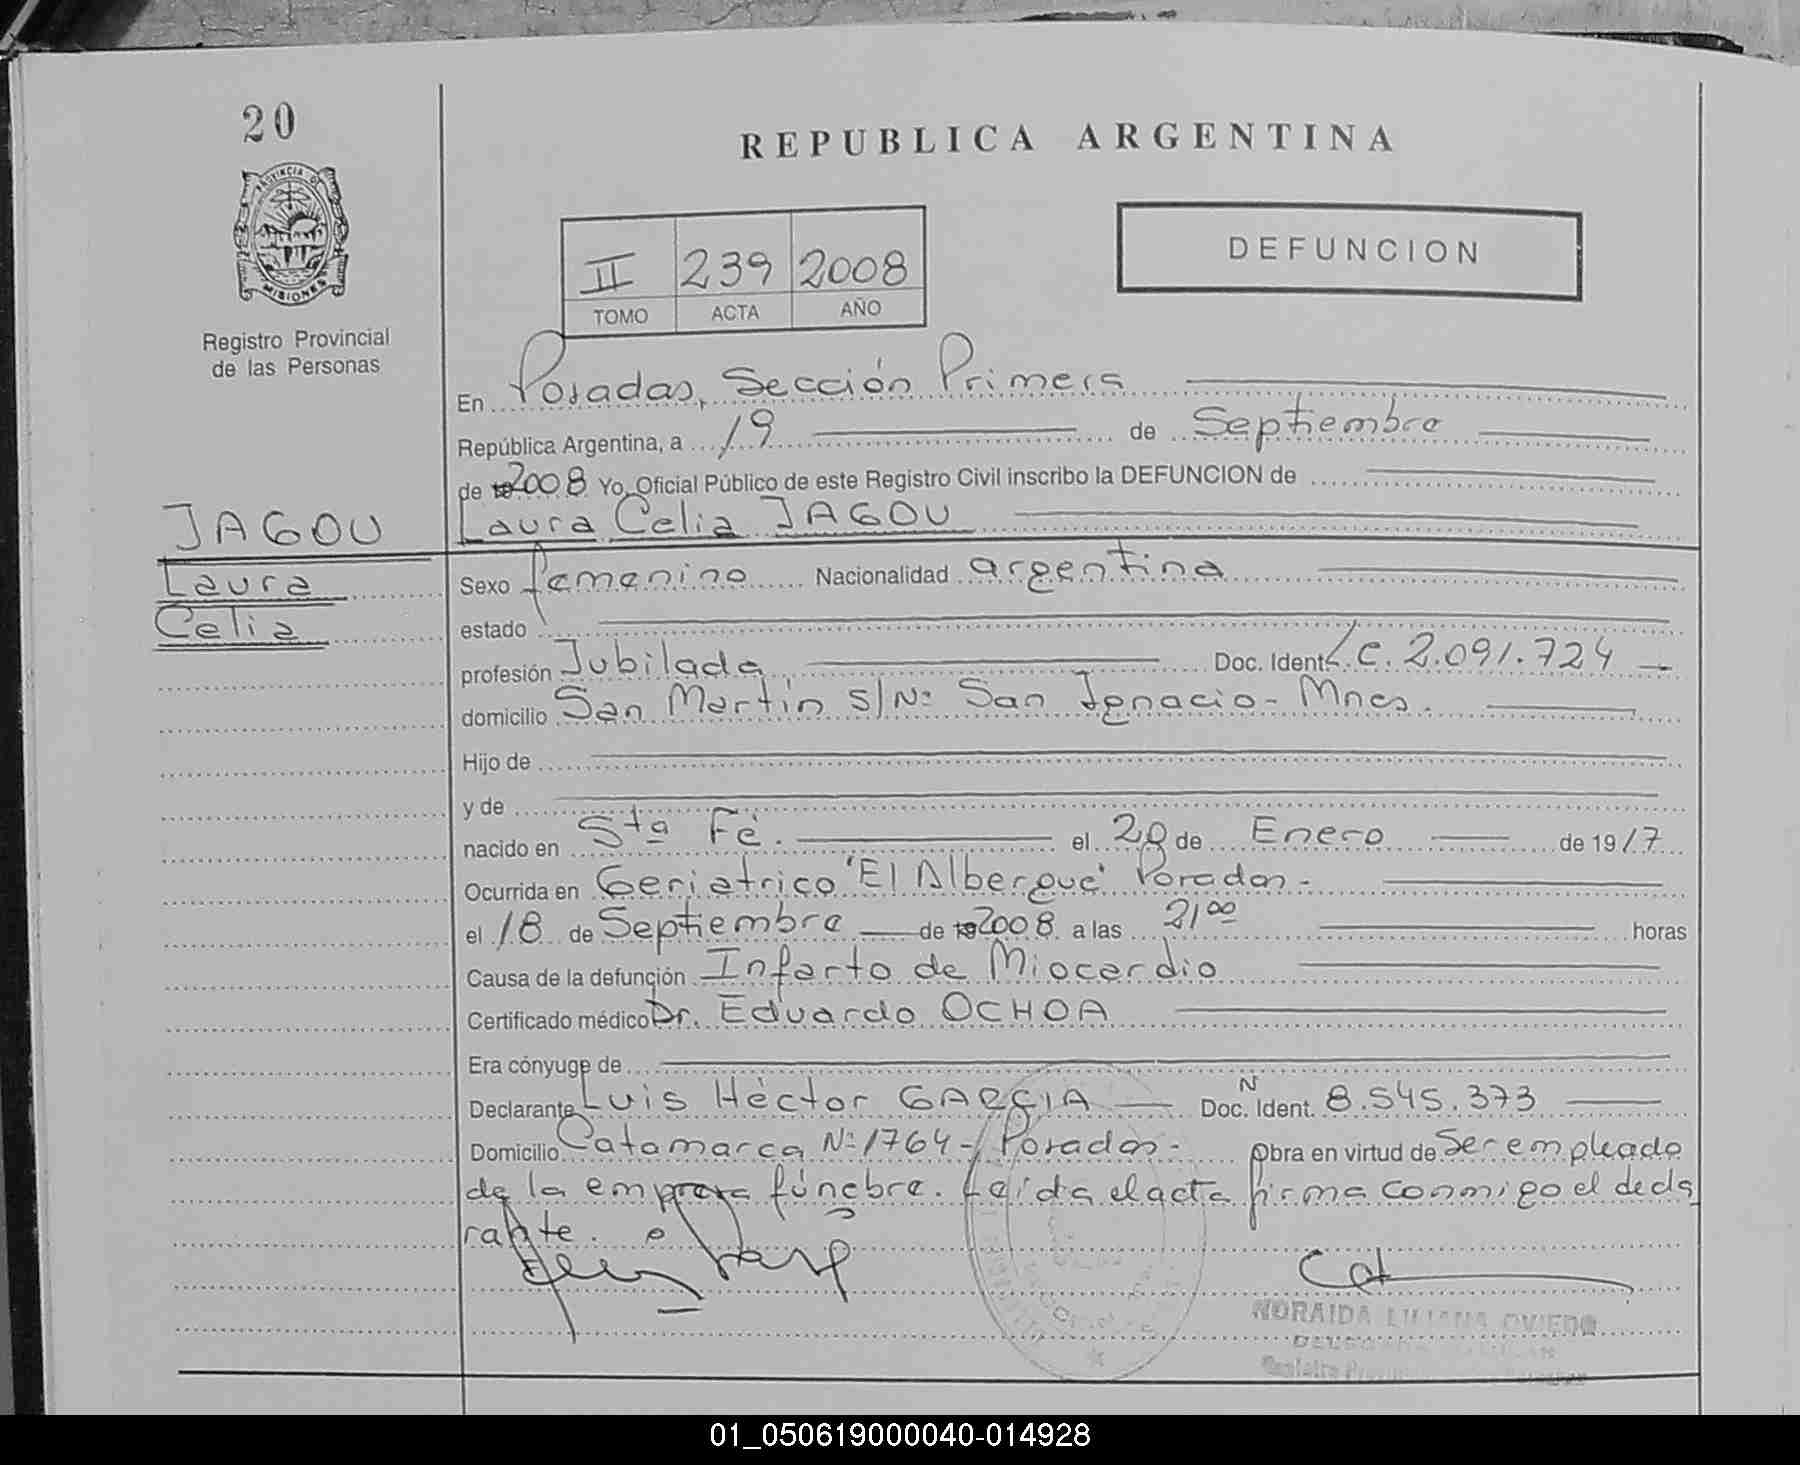 20
REPUBLICA ARGENTINA
PROVINCIA DE
MISIONES
Registro Provincial
de las Personas
II 239 2008
TOMO ACTA AÑO
DEFUNCION
En Posadas, Sección Primera
República Argentina, a 19 de Septiembre
de 2008 Yo, Oficial Público de este Registro Civil inscribo la DEFUNCION de
JAGOU
Laura Celia JAGOU
Laura
Celia
Sexo femenino Nacionalidad argentina
estado
profesión Jubilada Doc. Ident. L.C. 2.091.724
domicilio San Martín S/Nº San Ignacio - Mnes.
Hijo de
y de
nacido en Sta Fé. el 20 de Enero de 1917
Ocurrida en Geriatrico "El Albergue" Posadas -
el 18 de Septiembre de 2008 a las 21 00 horas
Causa de la defunción Infarto de Miocardio
Certificado médico Dr. Eduardo OCHOA
Era cónyuge de
Declarante Luis Héctor GARCIA Doc. N Ident. 8.545.373
Domicilio Catamarca Nº 1764 - Posadas - Obra en virtud de Ser empleado
de la empresa fúnebre. Leída el acta firma conmigo el decla
rante.
NORAIDA LILIANA OVIEDO
01_050619000040-014928